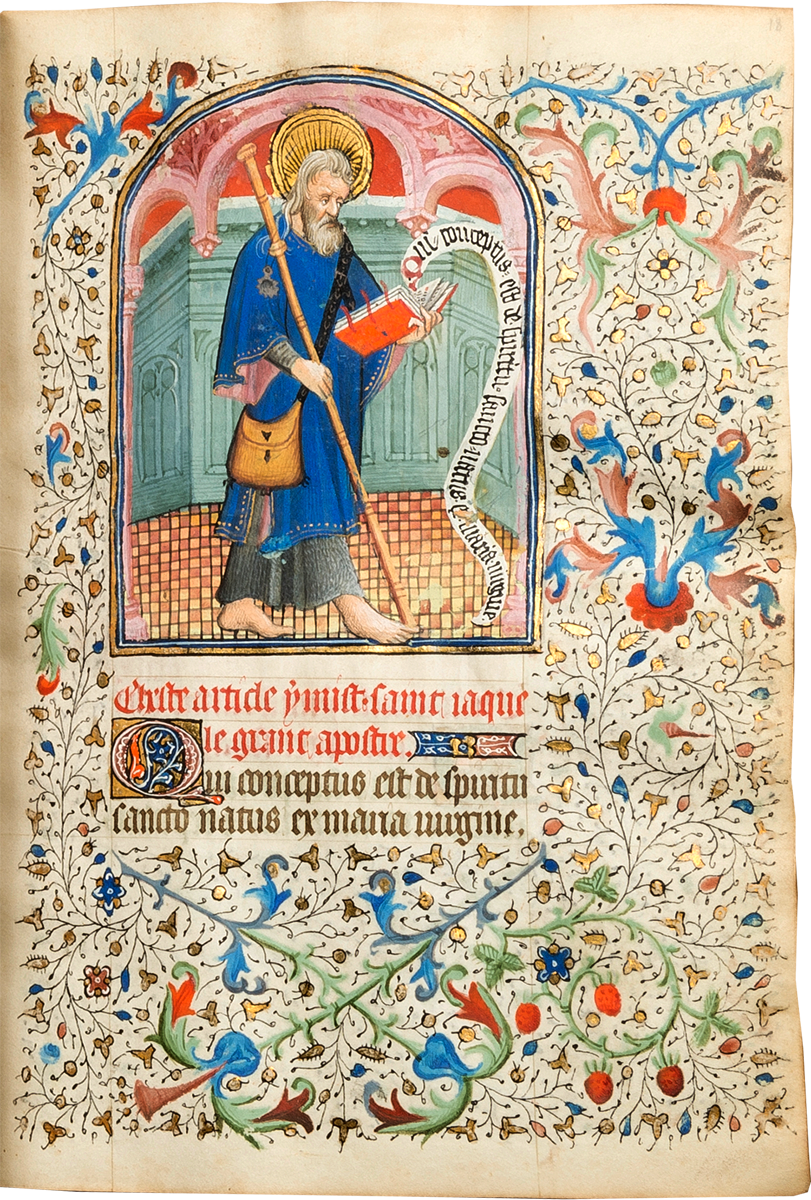 18
Qui conceptus est de spiritu sancto natus ex maria virgine
Cheste article y mist saint iaque
le grant apostre.
Qui conceptus est de spiritu
sancto natus ex maria uirgine.